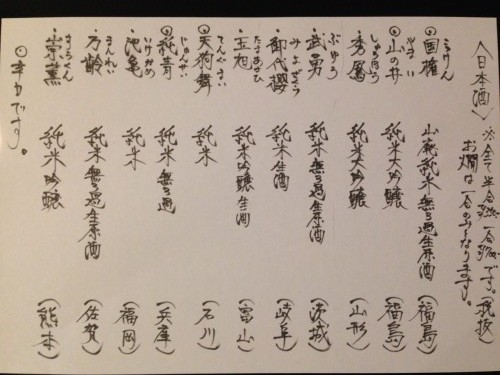 〈日本酒〉 ※全て半合 一合 です。(税抜)
お燗は一合のみとなります。
こっけん
⦿国権 山廃純米無ろ過生原酒 (福島)
やまのい
⦿山の井 純米大吟醸 (福島)
しゅうほう
・秀鳳 純米大吟醸 (山形)
ぶゆう
・武勇 純米無ろ過生原酒 (茨城)
みよざくら
・御代櫻 純米生酒 (岐阜)
たまあさひ
・玉旭 純米吟醸生酒 (富山)
てんぐまい
⦿天狗舞 純米 (石川)
じゅんせい
⦿純青 純米無ろ過 (兵庫)
いけかめ
・池亀 純米 (福岡)
まんれい
・万齢 純米無ろ過生原酒 (佐賀)
・崇薫 純米吟醸 (熊本)
⦿辛口です。